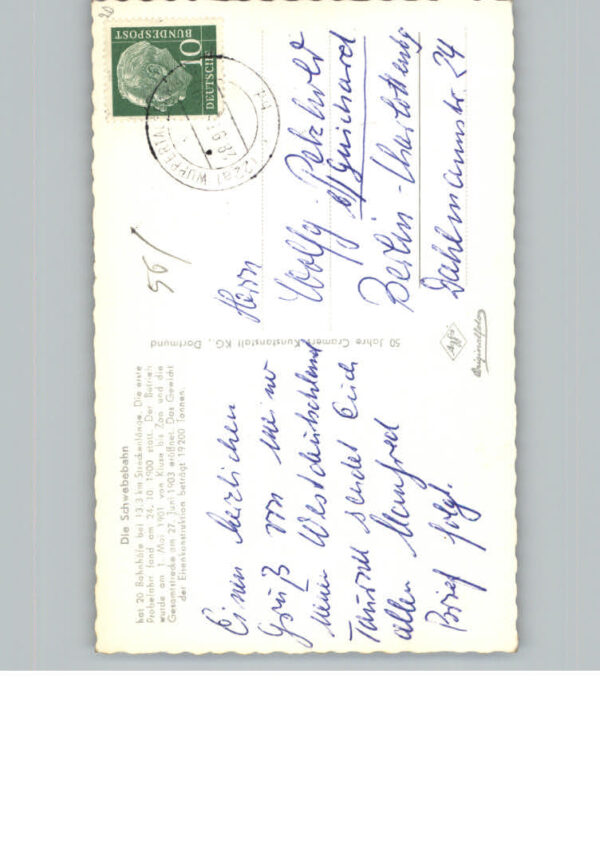 Die Schwebebahn
hat 20 Bahnhöfe bei 13,3 km Streckenlänge. Die erste
Probefahrt fand am 24. 10. 1900 statt. Der Betrieb
wurde am 1. Mai 1901 von Kluse bis Zoo und die
Gesamtstrecke am 27. Juni 1903 eröffnet. Das Gewicht
der Eisenkonstruktion beträgt 19200 Tonnen.
Einen herzlichen
Gruß von meiner
Westdeutschland
Tournee sendet Euch
allen Manfred
Brief folgt.
50 Jahre Cramers Kunstanstalt KG., Dortmund
20
DEUTSCHE
BUNDESPOST
10
(22a) WUPPERTAL
56/
Herrn
Wolfg. Petzhold
b/Guichard
Berlin-Charlottenbg
Dahlmannstr. 24
Agfa
Originalfoto